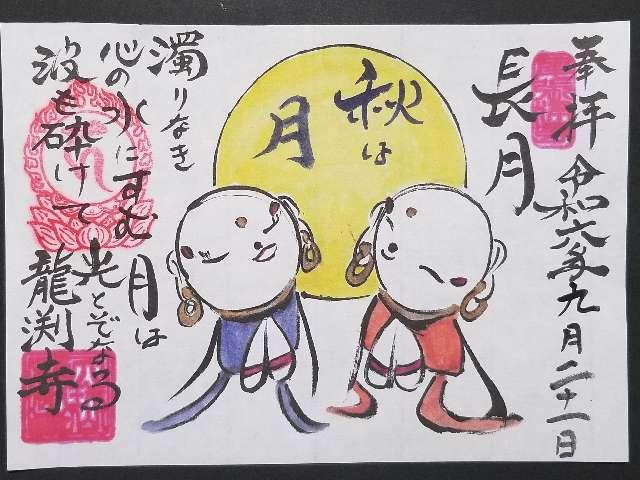 奉拝 令和六年九月二十一日
長月
秋は
月
濁りなき
心の水にすむ月は
波も砕けて光とぞなる
龍渕寺